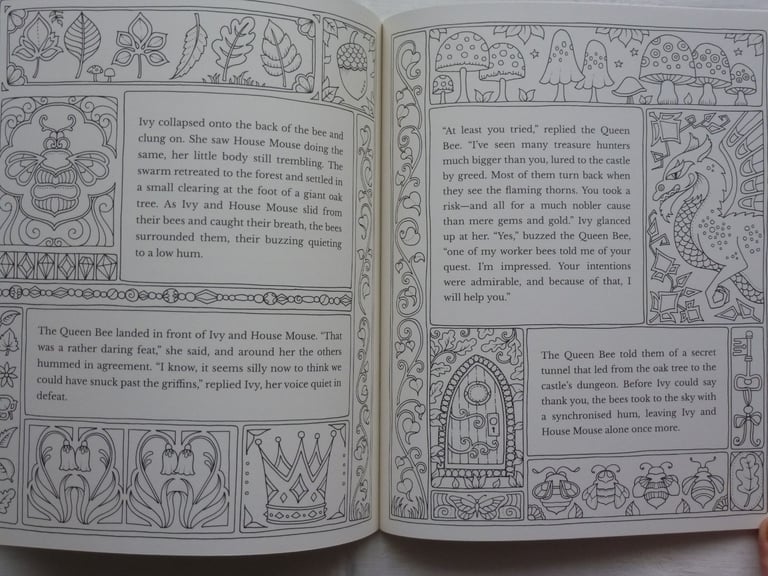 Ivy collapsed onto the back of the bee and
clung on. She saw House Mouse doing the
same, her little body still trembling. The
swarm retreated to the forest and settled in
a small clearing at the foot of a giant oak
tree. As Ivy and House Mouse slid from
their bees and caught their breath, the bees
surrounded them, their buzzing quieting
to a low hum.
The Queen Bee landed in front of Ivy and House Mouse. “That
was a rather daring feat,” she said, and around her the others
hummed in agreement. “I know, it seems silly now to think we
could have snuck past the griffins,” replied Ivy, her voice quiet in
defeat.
“At least you tried,” replied the Queen
Bee. “I’ve seen many treasure hunters
much bigger than you, lured to the castle
by greed. Most of them turn back when
they see the flaming thorns. You took a
risk—and all for a much nobler cause
than mere gems and gold.” Ivy glanced
up at her. “Yes,” buzzed the Queen Bee,
“one of my worker bees told me of your
quest. I’m impressed. Your intentions
were admirable, and because of that, I
will help you.”
The Queen Bee told them of a secret
tunnel that led from the oak tree to the
castle’s dungeon. Before Ivy could say
thank you, the bees took to the sky with
a synchronised hum, leaving Ivy and
House Mouse alone once more.